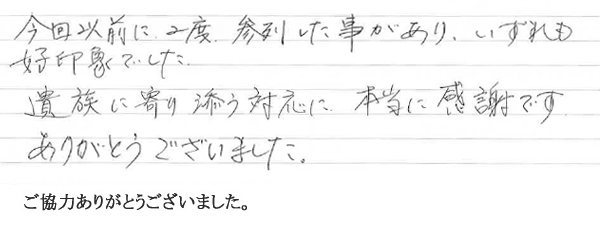 今回以前に、2度、参列した事があり、いずれも
好印象でした。
遺族に寄り添う対応に、本当に感謝です
ありがとうございました。
ご協力ありがとうございました。